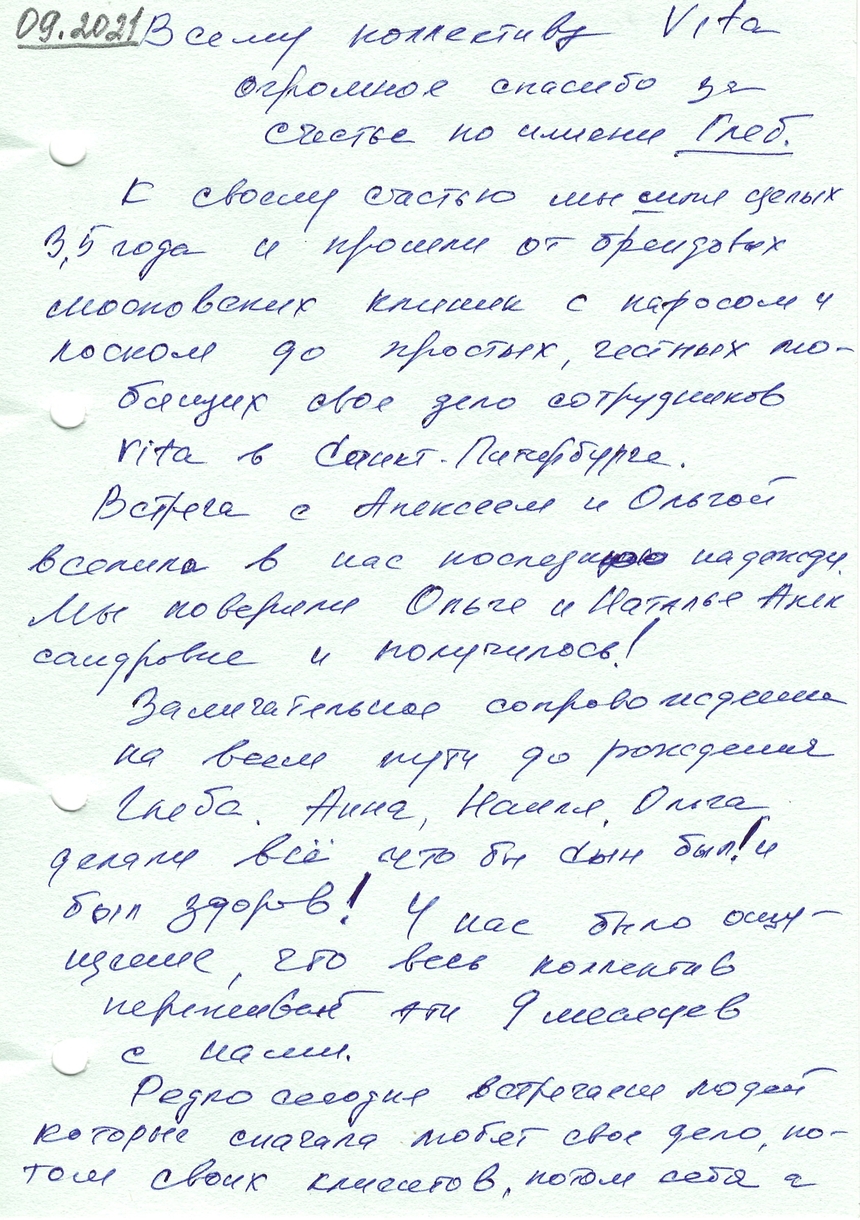 09.2021 Всему коллективу Vita
огромное спасибо за
счастье по имени Глеб.
К своему счастью мы шли целых
3,5 года и прошли от брендовых
московских клиник с пафосом и
лоском до простых, честных лю-
бящих свое дело сотрудников
Vita в Санкт-Питербурге.
Встреча с Алексеем и Ольгой
вселила в нас последнюю надежду.
Мы поверили Ольге и Наталье Алек
сандровне и получилось!
Замечательное сопровождение
на всем пути до рождения
Глеба. Анна, Наиля, Ольга
делали всё что бы сын был! и
был здоров! У нас было ощу-
щение, что весь коллектив
переживает эти 9 месяцев
с нами.
Редко сегодня встречаем людей
которые сначала любят свое дело, по-
том своих клиентов, потом себя а